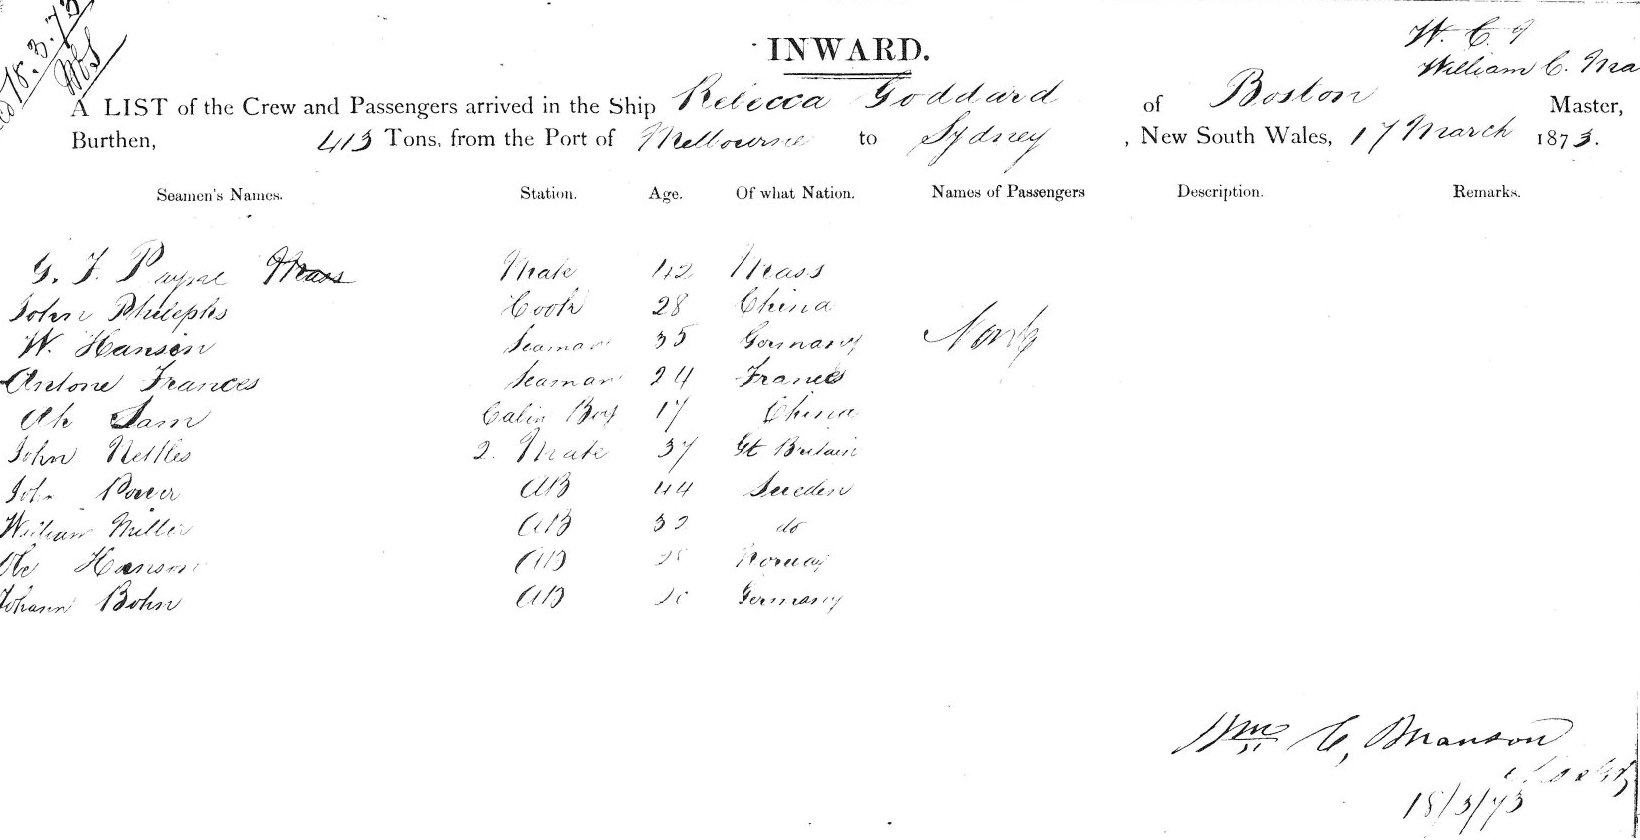 18.3.73
INWARD.
W. C.
William C.
A LIST of the Crew and Passengers arrived in the Ship Rebecca Goddard of Boston Master,
Burthen, 413 Tons, from the Port of Melbourne to Sydney, New South Wales, 17 March 1873.
Seamen's Names. Station. Age. Of what Nation. Names of Passengers Description. Remarks.
G. F. Payne Mass Mate 42 Mass
John Philephs Cook 28 China
W. Hansen Seaman 35 Germany None
Antone Frances Seaman 24 France
Ah Sam Cabin Boy 17 China
John Nettles 2. Mate 37 Gt Britain
John AB 44 Sweden
William Miller AB 32 do
Hanson AB Norway
Johann Bohn AB Germany
Wm C,
18/3/73